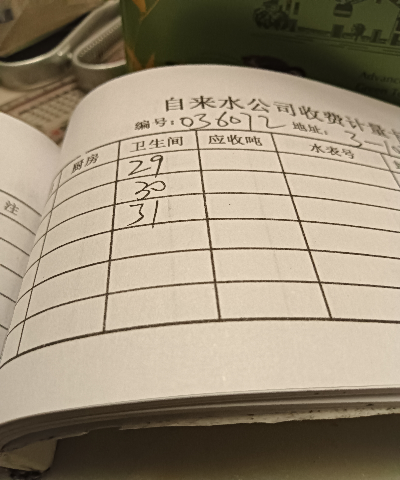 Advance
自来水公司收费计量
编号:036072 地址: 3-1
注
厨房 卫生间 应收吨 水表号
29
30
31